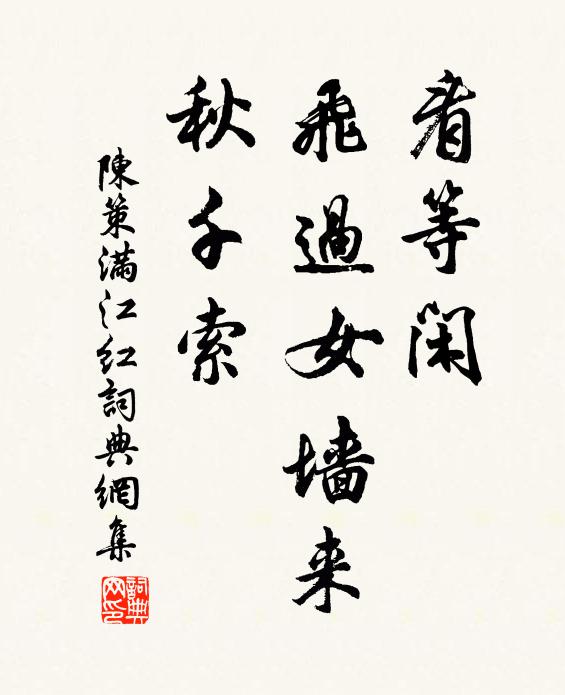 看等閑
飛過女墻来
秋千索
陳策滿江紅詞典網集
詞典
网印